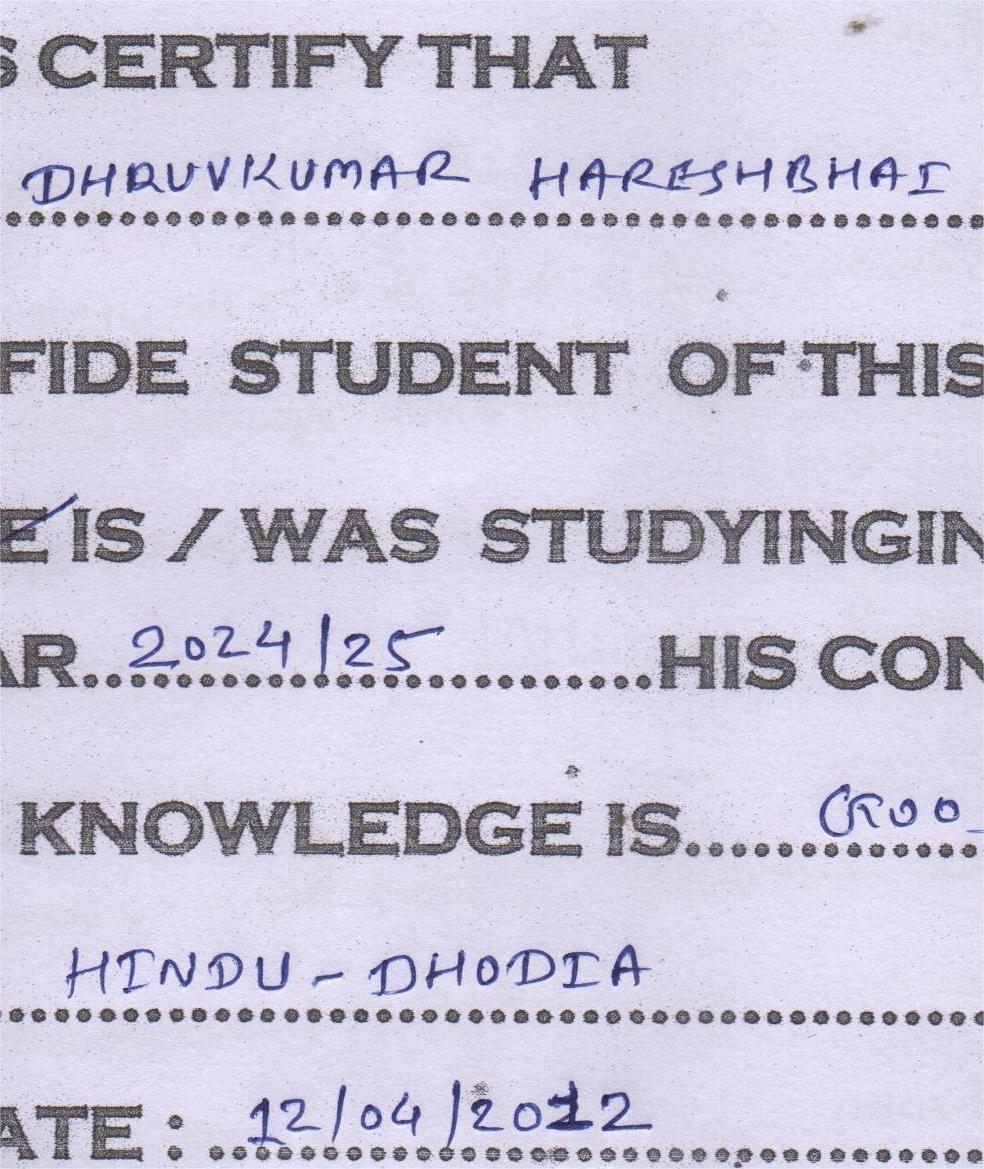 S CERTIFY THAT
DHRUVKUMAR HARESHBHAI
FIDE STUDENT OF THIS
E IS / WAS STUDYINGIN
AR 2024/25 HIS CON
KNOWLEDGE IS Goo
HINDU - DHODIA
ATE : 12/04/2012